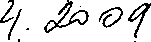 4. 2009